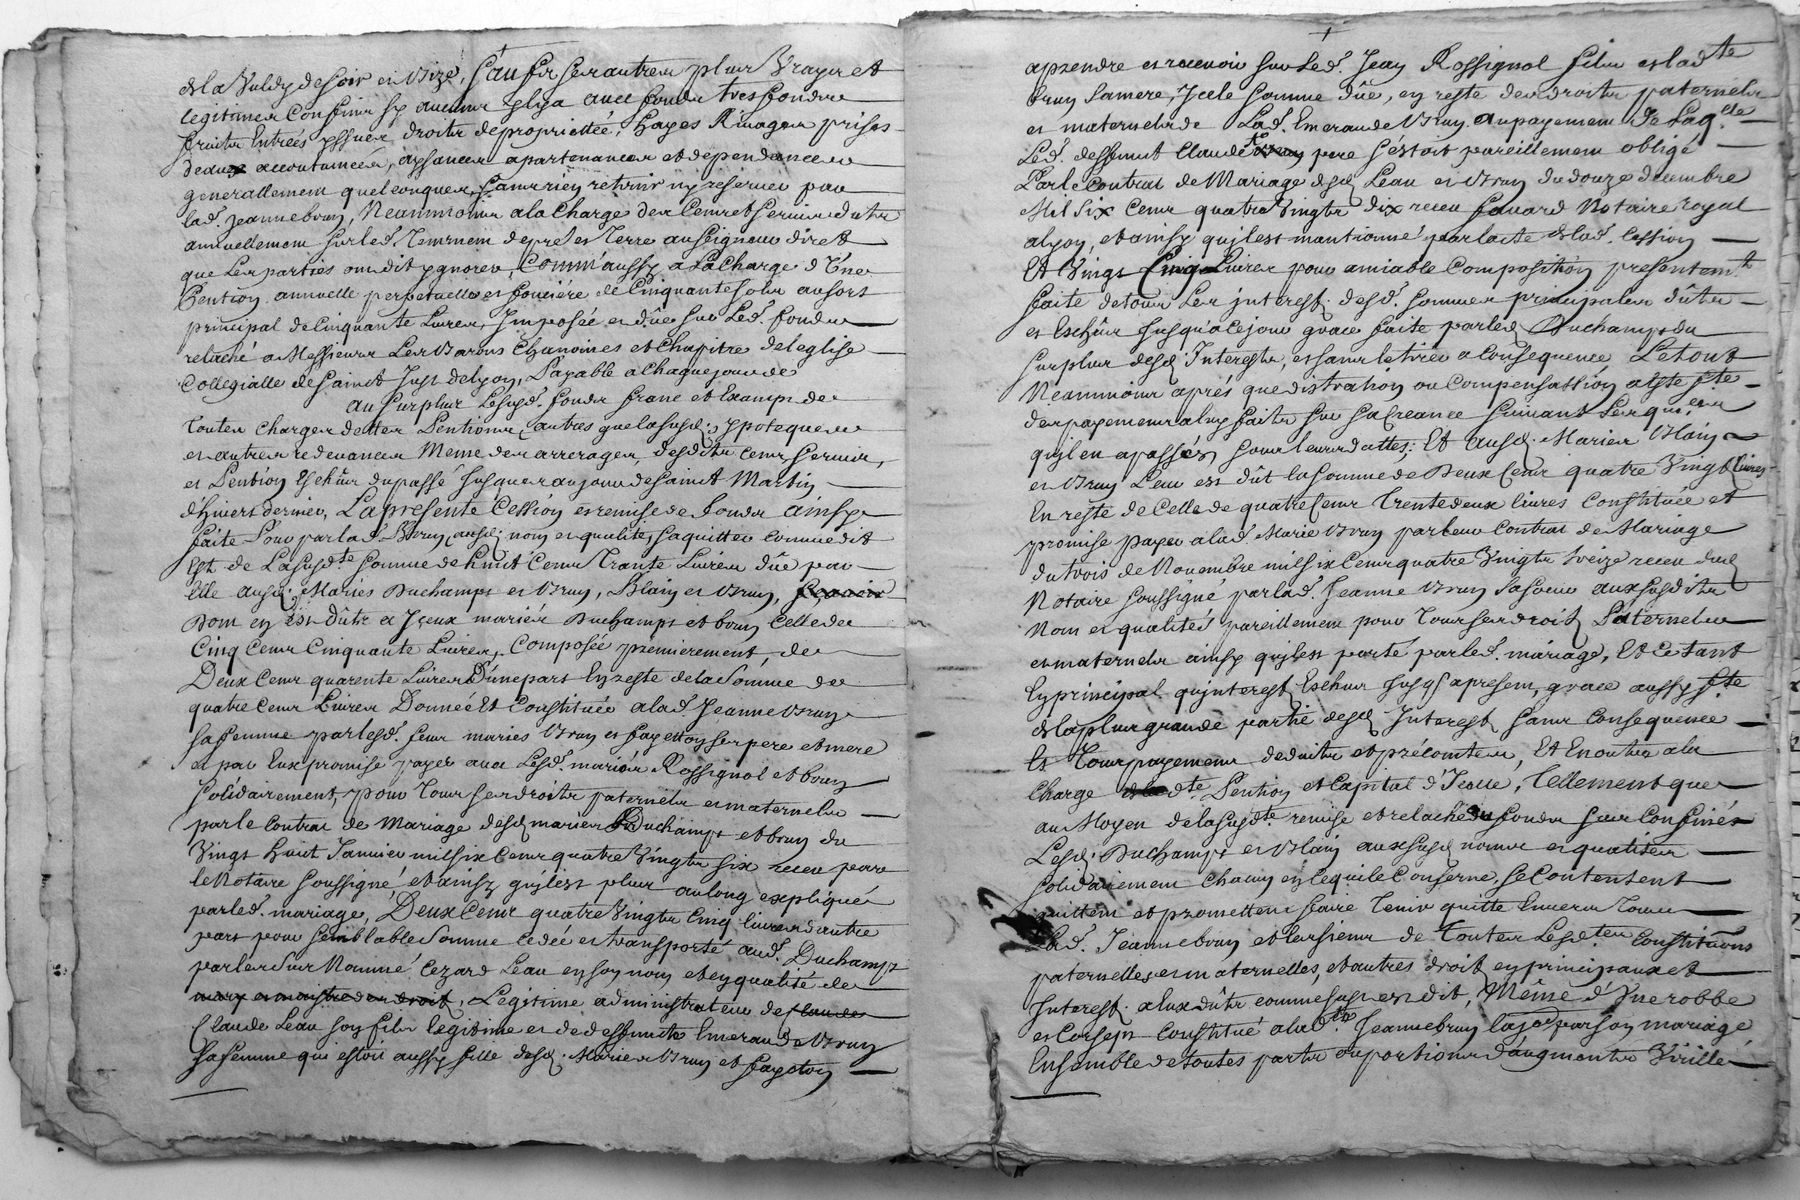 de soir et bize, sauf ses autres plus vrayes et
legitimes confins sy aucuns y lya avec fonds tresfonds
fruits entrées yssues droits de proprietté, hayes rivages prises
deaux accoutumees, aysances apartenances et dependances
generallement quelconques, sans rien retenir ny reserver par
lad. Jeanne brun, Neanmoins a la charge des cens et servis dubts
annuellement sur led. tennem de pré et Terre au seigneur direct
que les parties ont dit ygnorer, Comm'aussy a la charge d'Une
Pention annuelle perpetuelle et fonciére de cinquante sols au sort
principal de cinquante Livres, Imposée et dûe sur led. fonds
relaché a Messieurs Les Barons Chanoines et Chapitre de leglise
Collegialle de sainct Just de lyon, Payable a chaque jour de
au surplus lesusd. fonds franc et Exampt de
toutes charges dettes Pentions, autres que lasusd. ypoteques
et autres redevances Meme des arrerages desdits cens, servis,
et Pention Escheus du passé jusques au jour de sainct Martin
d'hivers dernier, La presente Cession et remise de fonds ainsy
faite Pour par lad. Brun, ausd. nom et qualité, saquitter comme dit
Est de Lasusdte somme de huict Cens Trante Livres dûe par
Elle ausd. Mariés Duchamps et Brun, Blain et Brun,
Dont en Est dûts a Iceux mariés Duchamps et brun Celle de
Cinq Cens Cinquante Livres, Composée premierement, de
Deux Cens quarente Livres D'une part En reste de la Somme de
quatre Cens Livres Donnée Et Constituée a lad. Jeanne Brun
sa femme par lesd. feux mariés Brun et fayetton ses pere et mere
et par Eux promise payer avec Lesd. mariés Rossignol et brun
solidairement, pour tous ses droits paternels et maternels
par le Contrat de Mariage desd. mariés Duchamps et brun du
Vingt huict Janvier mil six Cens quatre Vingts six receu par
le Notaire soussigné, et ainsy quil est plus au long expliqué
par led. mariage, Deux Cens quatre Vingts Cinq livres d'autre
part pour semblable Somme cedée et transporté aud. Duchamp
par le sieur Nommé Cezard Leau en son nom et en qualité de
mary et maistre des droit, Legitime administrateur de
Claude Leau son fils legitime et de deffuncte Emeraude Brun
sa femme qui estoit aussy fille desd. Mariés Brun et fayetton
aprendre et recevoir sur Led. Jean Rossignol fils et ladte
brun sa mere, Icelle somme dûe, en reste des droits paternels
et maternels de Lad. Emeraude Brun, au payement De Laqlle
Led. deffunct Claude pere s'estoit pareillement obligé
Par le Contrat de Mariage desd. Leau et Brun du douze decembre
Mil Six Cens quatre Vingts dix receu favard Notaire royal
a lyon, et ainsy quil est mantionné par lacte de lad. Cession
Et Vingt Cinq Livres pour amiable Composition presentemt
faite de tous Les interest. desd. sommes principales dûts
et Escheus jusqu'a ce jour grace faite par led. Duchamps du
surplus desd. Interests, et sans le tirée a Consequence Le tout
Neanmoins aprés que distration ou Compensassion a este fte
des payemens a luy faits sur sa creance suivant Les quices
quil en a passés sous leurs dattes; Et ausd. Mariés Blain
et Brun Leur est dût la somme de Deux Cens quatre Vingt livres
En reste de Celle de quatre Cens Trente deux livres Constituée et
promise payer a lad. Marie Brun par leur Contrat de Mariage
du trois de Novembre mil six Cens quatre Vingts treize receu dud.
Notaire soussigné par lad. Jeanne Brun sa soeur aux susdits
Nom et qualités pareillement pour tous ses droits Paternels
et maternels ainsy quil est porté par led. mariage, Et ce tant
En principal qu'interest Escheus jusqs a presem, grace aussy fte
de la plus grande partie desd. Interest sans Consequence
Et tous payemens deduits et précomtés, Et En outre a la
Charge Pention et Capital d'Icelle, Tellement que
au Moyen de lasusdte remise et relaché de fonds sus Confinés
Lesd. Duchamps et Blain aux susd. noms et qualités
solidairement chacun en ce qui le Conserne, se Contentent
quittent et promettent faire Tenir quitte Envers tous
Lad. Jeanne brun et les siens de Toutes Lesdtes Constitutions
paternelles et maternelles, et autres droit en principaux et
Interest. a Eux dûts comme sus est dit, Même d'Une robbe
et Corsept Constitué a ladte Jeanne brun par son mariage
Ensemble de toutes parts ou portions d'augments Virille